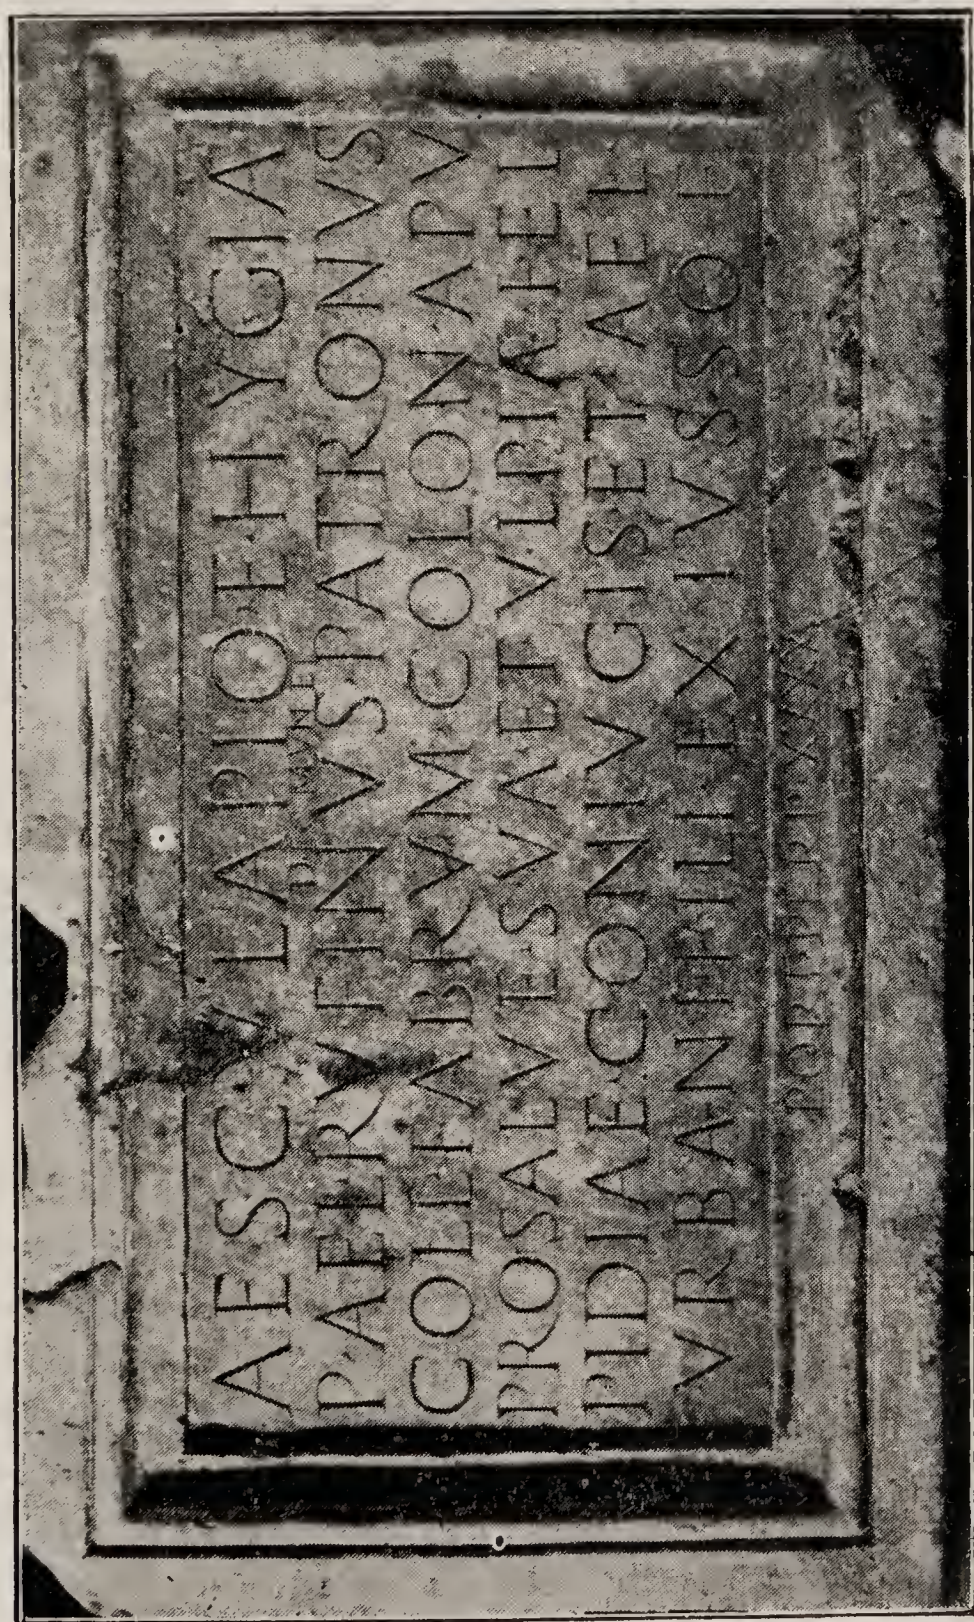 AESCVLAPIO E HYGIA
D MVN ET
P AEL RVFINVS PATRONVS
COLL FABRVM COLON APV
PRO SALVE SVA ET VLPIA HEL
PIDIAE CONIVGIS ET AEL
VRBANI FILI EX IVSSO L